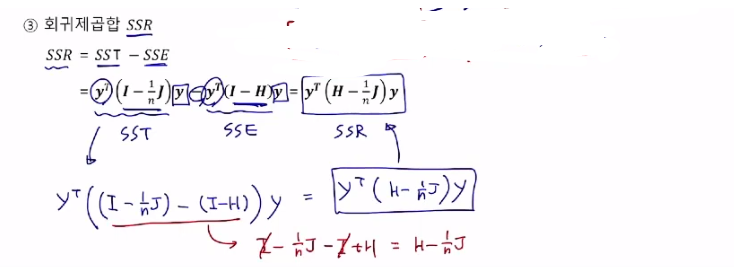 ③ 회귀제곱합 SSR
SSR = SST − SSE
= yᵀ(I − 1/n J)y − yᵀ(I − H)y = yᵀ(H − 1/n J)y
SST SSE SSR
Yᵀ((I − 1/n J) − (I−H))y = Yᵀ(H − 1/n J)y
I − 1/n J − I + H = H − 1/n J